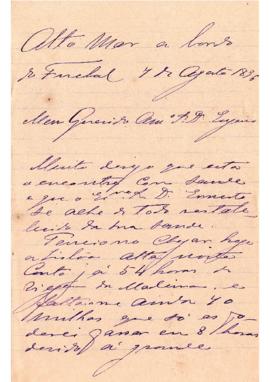 Alto Mar a bordo
do Funchal 7 de Agosto 1896
Meu Querido Amº D. Eugenio
Muito dezejo que esta
o encontre com saude
e que o D. Ernesto
se ache de todo restabe-
lecido da sua saude.
Tenciono chegar hoje
a Lisboa alta noite
Conto já 54 horas de
viagem da Madeira e
faltam-me ainda 70
milhas que só as po-
derei passar em 8 horas
devido á grande